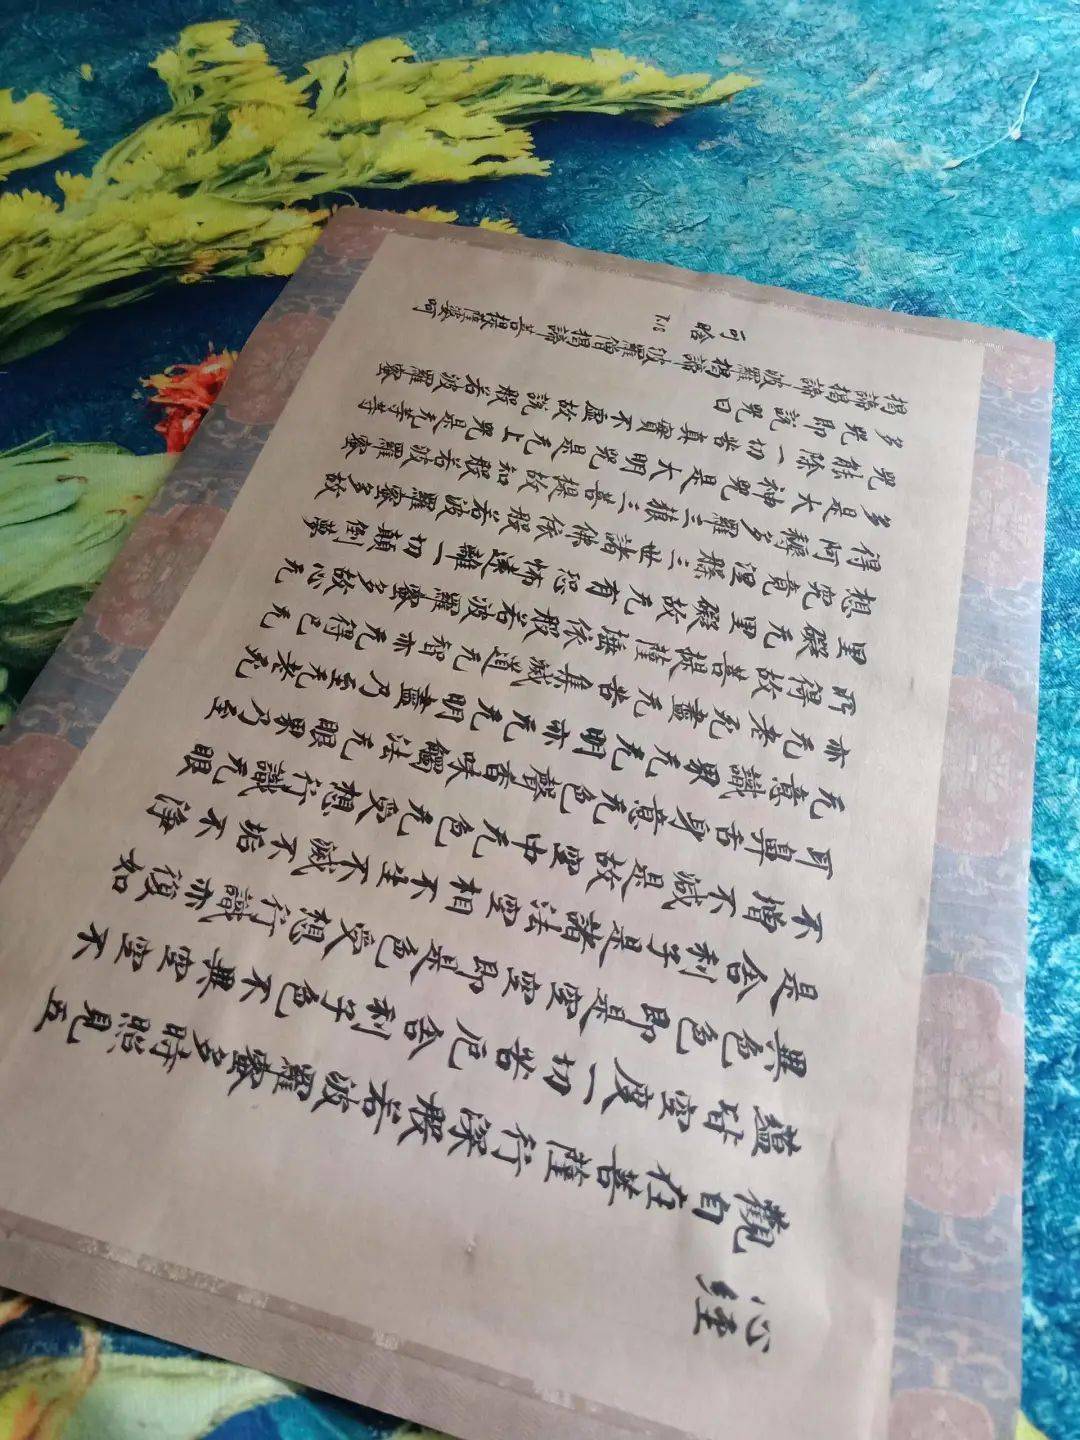 心經
觀自在菩薩行深般若波羅蜜多時照見五
蘊皆空度一切苦厄舍利子色不異空空不
異色色即是空空即是色受想行識亦復如
是舍利子是諸法空相不生不滅不垢不淨
不增不減是故空中无色无受想行識无眼
耳鼻舌身意无色聲香味觸法无眼界乃至
无意識界无无明亦无无明盡乃至无老死
亦无老死盡无苦集滅道无智亦无得已无
所得故菩提薩埵依般若波羅蜜多故心无
罣礙无罣礙故无有恐怖遠離一切顛倒夢
想究竟涅槃三世諸佛依般若波羅蜜多故
得阿耨多羅三藐三菩提故知般若波羅蜜
多是大神咒是大明咒是无上咒是无等等
咒能除一切苦真實不虛故說般若波羅蜜
多咒即說咒曰
揭諦揭諦波羅揭諦波羅僧揭諦菩提薩婆呵
可哈